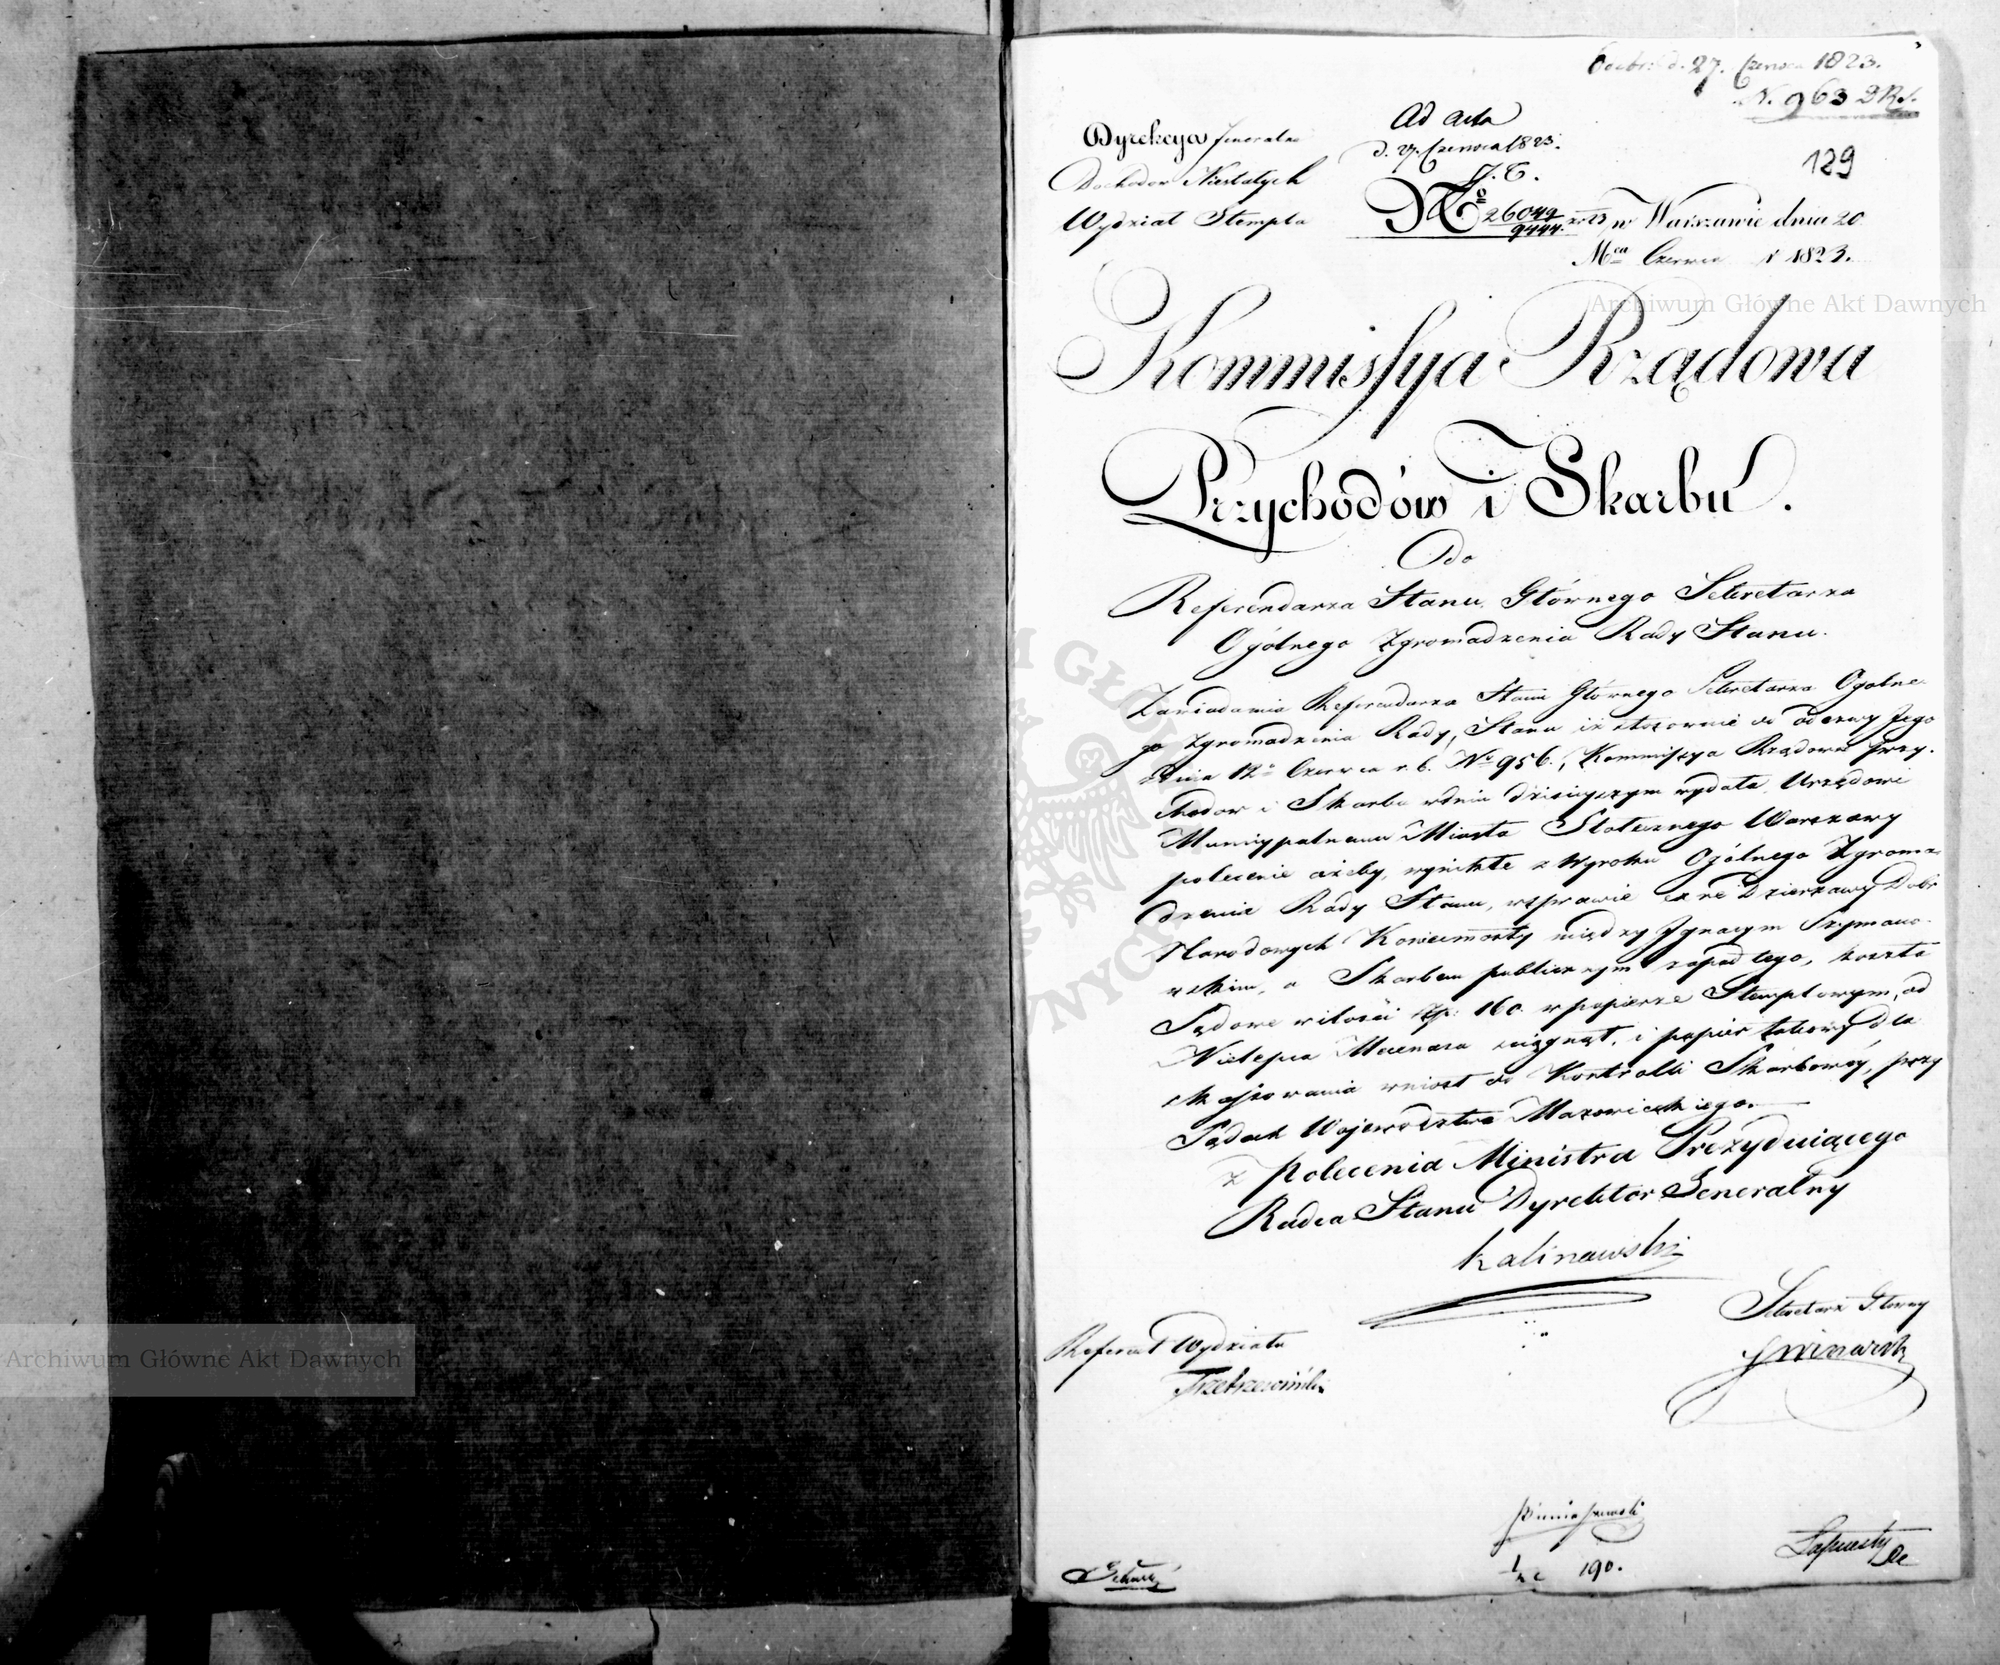 Odebr: d. 27. Czerwca 1823.
N. 963 D R S.
129
Ad acta
d. 27. Czerwca 1823.
Dyrekcya Jeneralna
Dochodow Niestałych
Wydział Stempla
No 26042/9444. w Warszawie dnia 20
Mca Czerwca r 1823.
Kommissya Rządowa
Przychodów i Skarbu.
Do
Referendarza Stanu Głównego Sekretarza
Ogólnego Zgromadzenia Rady Stanu.
Zawiadamia Referendarza Stanu Głównego Sekretarza Ogolne-
go Zgromadzenia Rady Stanu iż stosownie do odezwy Jego
z dnia 12o Czerwca r. b. No 956., Kommissya Rządowa Przy-
chodow i Skarbu w dniu dzisieyszym wydała Urzędowi
Municypalnemu Miasta Stołecznego Warszawy
polecenie ażeby, wynikłe z Wyroku Ogólnego Zgroma-
dzenia Rady Stanu, w sprawie co do Dzierżawy Dobr
Narodowych między Ignacym Szymano-
wskim, a Skarbem publicznym zapadłego, koszta
Sądowe w ilości Zp. 160. w papierze Stemplowym, od
Nielepca Mecenasa ściągnął, i papier takowy dla
skassowania wniosł do Kontrolli Skarbowéy, przy
Sądach Wojewodztwa Mazowieckiego.
z Polecenia Ministra Prezyduiącego
Radca Stanu Dyrektor Generalny
Kalinowski
Sekretarz Główny
Referent Wydziału
190.
Archiwum Główne Akt Dawnych
Archiwum Główne Akt Dawnych